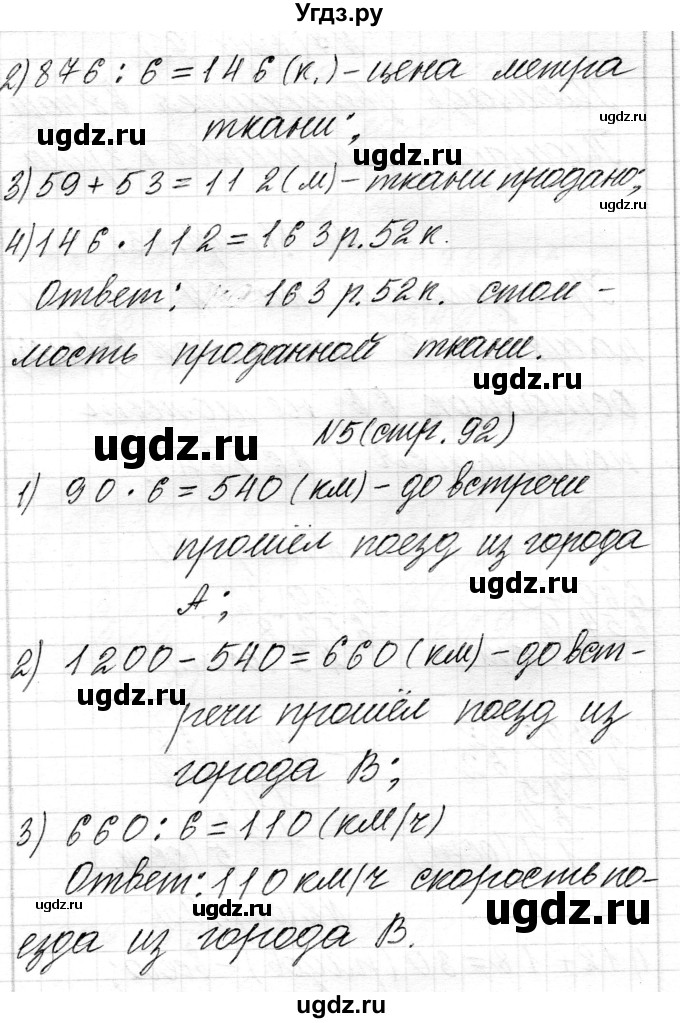 Угдз.ру
2) 876 : 6 = 146 (к.) – цена метра
ткани;
3) 59 + 53 = 112 (м) – ткани продано;
4) 146 · 112 = 163 р. 52 к.
Ответ: 163 р. 52 к. стои-
мость проданной ткани.
N5 (стр. 92)
1) 90 · 6 = 540 (км) – до встречи
прошёл поезд из города
А;
2) 1200 – 540 = 660 (км) – до вст-
речи прошёл поезд из
города В;
3) 660 : 6 = 110 (км/ч)
Ответ: 110 км/ч скорость по-
езда из города В.
ugdz.ru
ugdz.ru
ugdz.ru
ugdz.ru
ugdz.ru
ugdz.ru
ugdz.ru
ugdz.ru
ugdz.ru
ugdz.ru
ugdz.ru
ugdz.ru
ugdz.ru